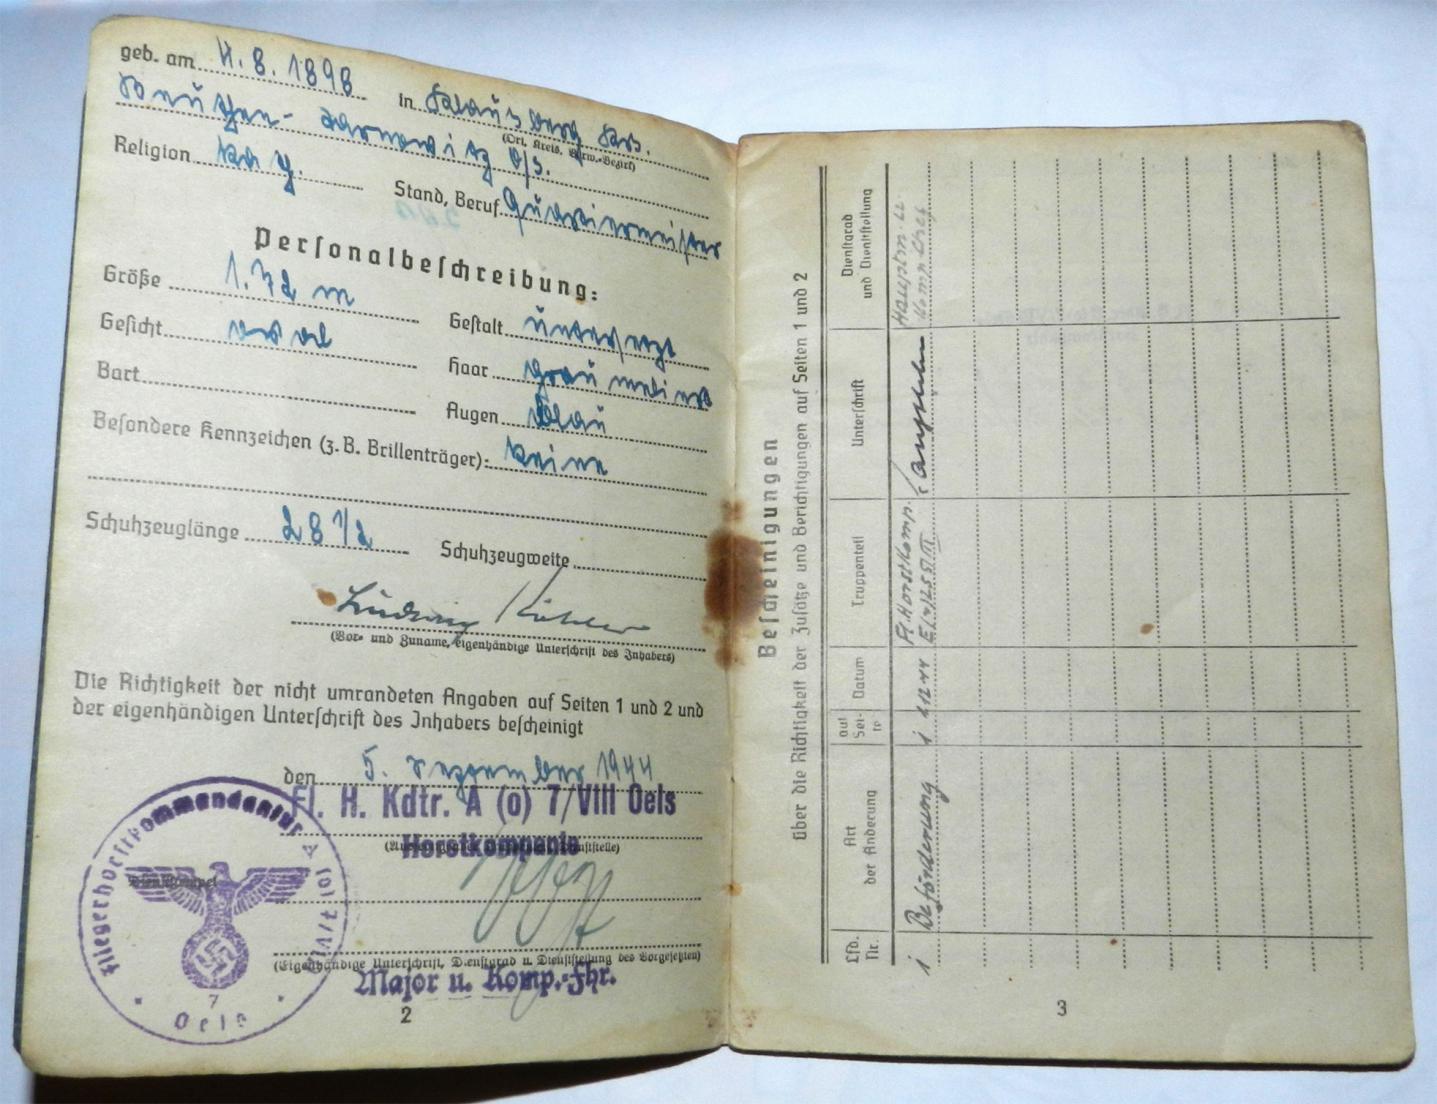 geb. am 4.8.1898 in Klausberg Krs.
(Ort, Kreis, Verw.-Bezirk)
Beuthen-Tarnowitz O/S.
Religion kath. Stand, Beruf
Personalbeschreibung:
Größe 1.72 m Gestalt untersetzt
Gesicht oval Haar grau meliert
Bart Augen blau
Besondere Kennzeichen (z. B. Brillenträger): keine
Schuhzeuglänge 28 1/2 Schuhzeugweite
Ludwig
(Vor- und Zuname, eigenhändige Unterschrift des Inhabers)
Die Richtigkeit der nicht umrandeten Angaben auf Seiten 1 und 2 und
der eigenhändigen Unterschrift des Inhabers bescheinigt
den 5. Dezember 1944
Fl. H. Kdtr. A (o) 7/VIII Oels
Horstkompanie
Dienststempel
Fliegerhorstkommandantur A (o) 7/VIII
7
Oels
(Eigenhändige Unterschrift, Dienstgrad u. Dienststellung des Vorgesetzten)
Major u. Komp.-Fhr.
2
Bescheinigungen
über die Richtigkeit der Zusätze und Berichtigungen auf Seiten 1 und 2
Lfd. Nr.
Art der Änderung
auf Sei-te
Datum
Truppenteil
Unterschrift
Dienstgrad und Dienststellung
1 Beförderung 1
Fl. Horstkomp.
Hauptm. u.
Komp. Chef
3